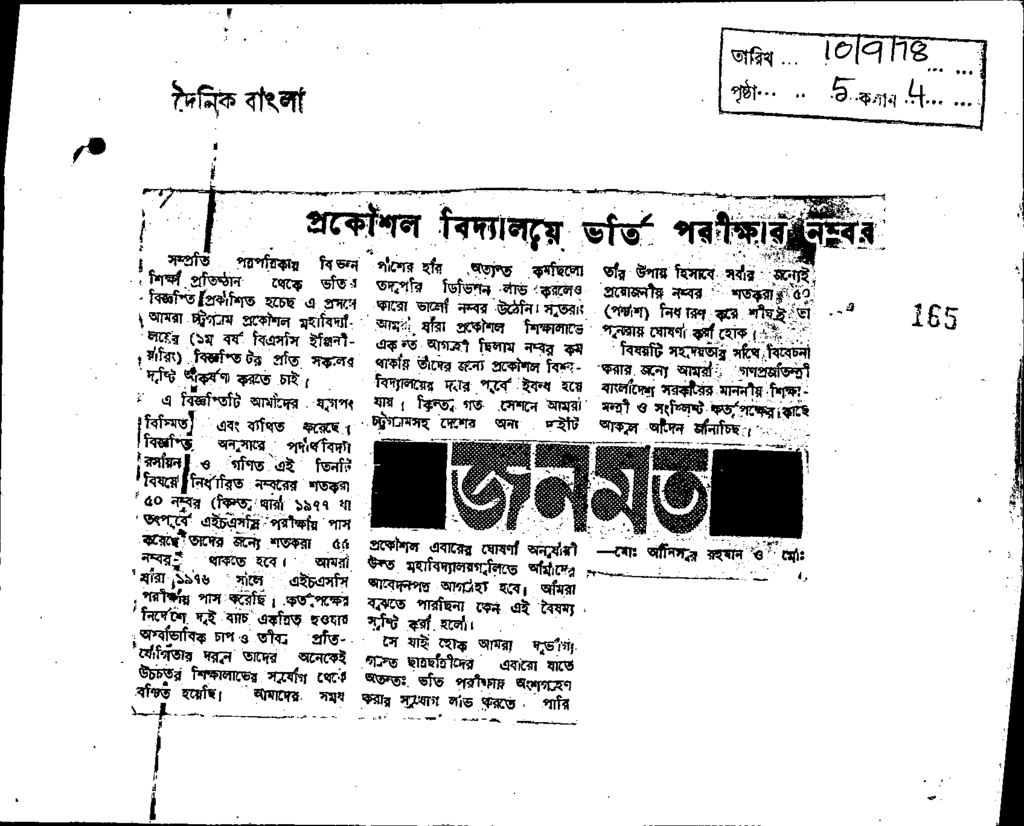 দৈনিক বাংলা
তারিখ ... 10/9/78 ... ...
পৃষ্ঠা... .. 5 কলাম 4... ...
165
প্রকৌশল বিদ্যালয়ে ভর্তি পরীক্ষার নম্বর
সম্প্রতি পত্রপত্রিকায় বিভিন্ন
শিক্ষা প্রতিষ্ঠান থেকে ভর্তির
বিজ্ঞপ্তি প্রকাশিত হচ্ছে এ প্রসঙ্গে
আমরা চট্টগ্রাম প্রকৌশল মহাবিদ্যা-
লয়ের (১ম বর্ষ বিএসসি ইঞ্জিনী-
য়ারিং) বিজ্ঞপ্তিটির প্রতি সকলের
দৃষ্টি আকর্ষণ করতে চাই।
এ বিজ্ঞপ্তিটি আমাদের যুগপৎ
বিস্মিত এবং ব্যথিত করেছে।
বিজ্ঞপ্তি অনুসারে পদার্থবিদ্যা
রসায়ন ও গণিত এই তিনটি
বিষয়ে নির্ধারিত নম্বরের শতকরা
৫০ নম্বর (কিন্তু যারা ১৯৭৭ বা
তৎপূর্বে এইচএসসি পরীক্ষায় পাস
করেছে তাদের জন্যে শতকরা ৫৫
নম্বর) থাকতে হবে। আমরা
যারা ১৯৭৬ সালে এইচএসসি
পরীক্ষায় পাস করেছি। কর্তৃপক্ষের
নির্দেশে দুই ব্যাচ একত্রিত হওয়ায়
অস্বাভাবিক চাপ ও তীব্র প্রতি-
যোগিতার দরুন তাদের অনেকেই
উচ্চতর শিক্ষালাভের সুযোগ থেকে
বঞ্চিত হয়েছি। আমাদের সময়
পাশের হার অত্যন্ত কমছিলো
তদুপরি ডিভিশন লাভ করলেও
কারো ভালো নম্বর উঠেনি। সুতরাং
আমরা যারা প্রকৌশল শিক্ষালাভে
একান্ত আগ্রহী ছিলাম নম্বর কম
থাকায় তাদের জন্যে প্রকৌশল বিশ্ব-
বিদ্যালয়ের দ্বার পূর্বেই বন্ধ হয়ে
যায়। কিন্তু গত সেশনে আমরা
চট্টগ্রামসহ দেশের অন্য দুইটি
জনমত
প্রকৌশল এবারের ঘোষণা অনুযায়ী
উক্ত মহাবিদ্যালয়গুলিতে আমাদের
আবেদনপত্র অগ্রাহ্য হবে। আমরা
বুঝতে পারছিনা কেন এই বৈষম্য
সৃষ্টি করা হলো।
সে যাই হোক আমরা দুর্ভাগ্য
গ্রস্ত ছাত্রছাত্রীদের এবারো যাতে
অন্ততঃ ভর্তি পরীক্ষায় অংশগ্রহণ
করার সুযোগ লাভ করতে পারি
তার উপায় হিসাবে সবার জন্যেই
প্রয়োজনীয় নম্বর শতকরা ৫০
(পঞ্চাশ) নির্ধারণ করে শীঘ্রই তা
পুনরায় ঘোষণা করা হোক।
বিষয়টি সহৃদয়তার সাথে বিবেচনা
করার জন্যে আমরা গণপ্রজাতন্ত্রী
বাংলাদেশ সরকারের মাননীয় শিক্ষা-
মন্ত্রী ও সংশ্লিষ্ট কর্তৃপক্ষের কাছে
আকুল আবেদন জানাচ্ছি।
—মোঃ আনিসুর রহমান ও মোঃ